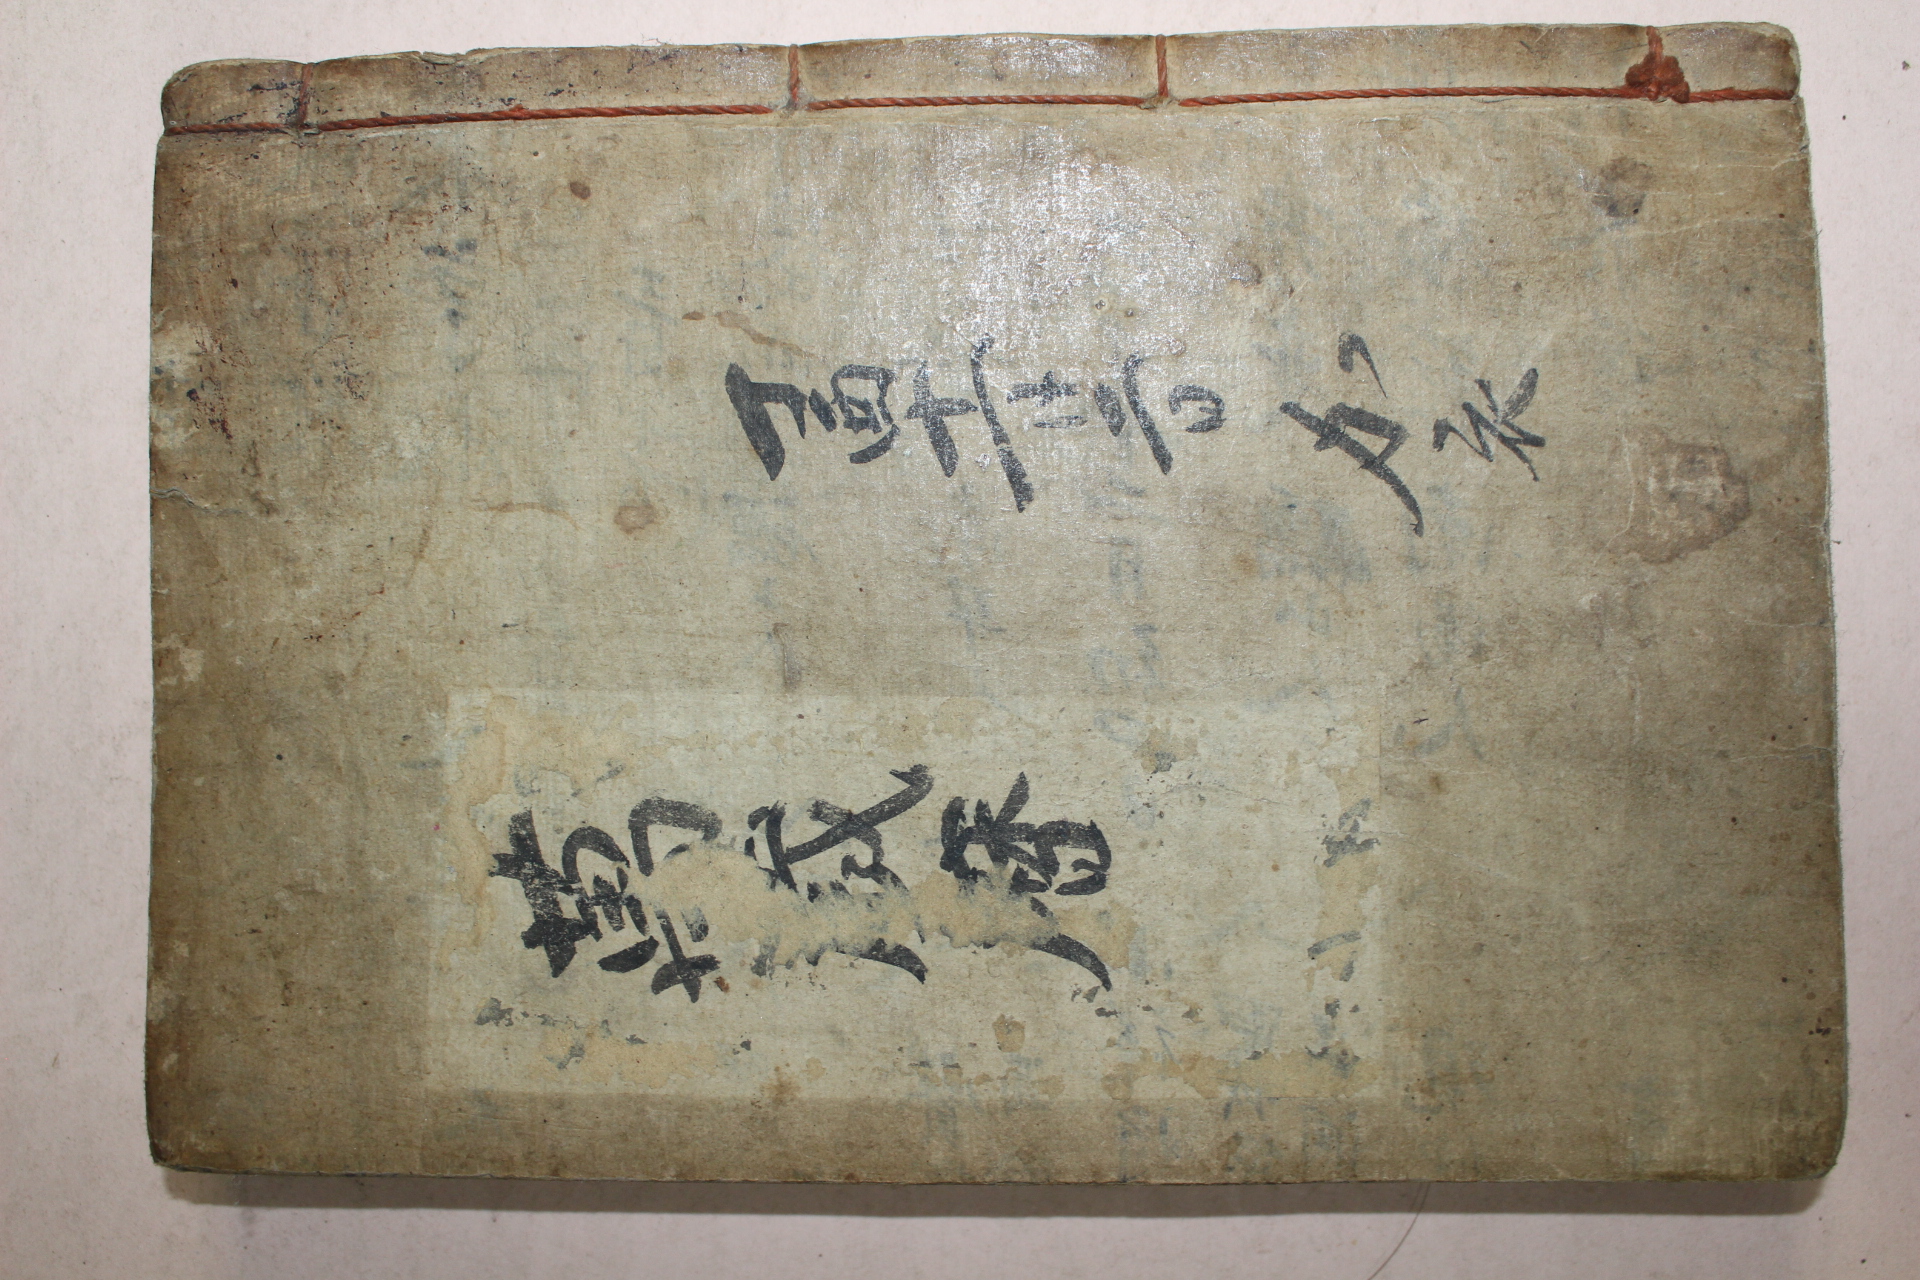 丁酉十一月廿二日 加衣
萬歲曆